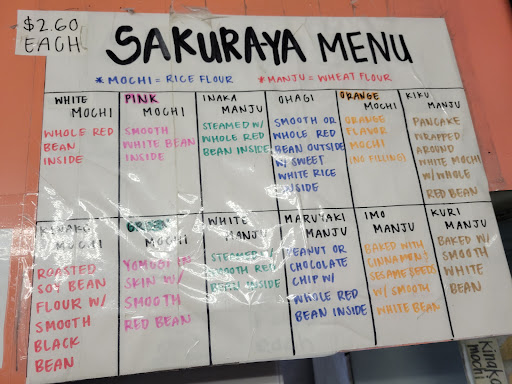 $2.60
EACH
SAKURAYA MENU
* MOCHI = RICE FLOUR
* MANJU = WHEAT FLOUR
WHITE
MOCHI
WHOLE RED
BEAN
INSIDE
PINK
MOCHI
SMOOTH
WHITE BEAN
INSIDE
INAKA
MANJU
STEAMED W/
WHOLE RED
BEAN INSIDE
OHAGI
SMOOTH OR
WHOLE RED
BEAN OUTSIDE
W/ SWEET
WHITE RICE
INSIDE
ORANGE
MOCHI
ORANGE
FLAVOR
MOCHI
(NO FILLING)
KIKU
MANJU
PANCAKE
WRAPPED
AROUND
WHITE MOCHI
W/ WHOLE
RED BEAN
KINAKO
MOCHI
ROASTED
SOY BEAN
FLOUR W/
SMOOTH
BLACK
BEAN
GREEN
MOCHI
YOMOGI IN
SKIN W/
SMOOTH
RED BEAN
WHITE
MANJU
STEAMED W/
SMOOTH RED
BEAN INSIDE
MARUYAKI
MANJU
PEANUT OR
CHOCOLATE
CHIP W/
WHOLE RED
BEAN INSIDE
IMO
MANJU
BAKED WITH
CINNAMON/
SESAME SEEDS
W/ SMOOTH
WHITE BEAN
KURI
MANJU
BAKED W/
SMOOTH
WHITE
BEAN
mochi